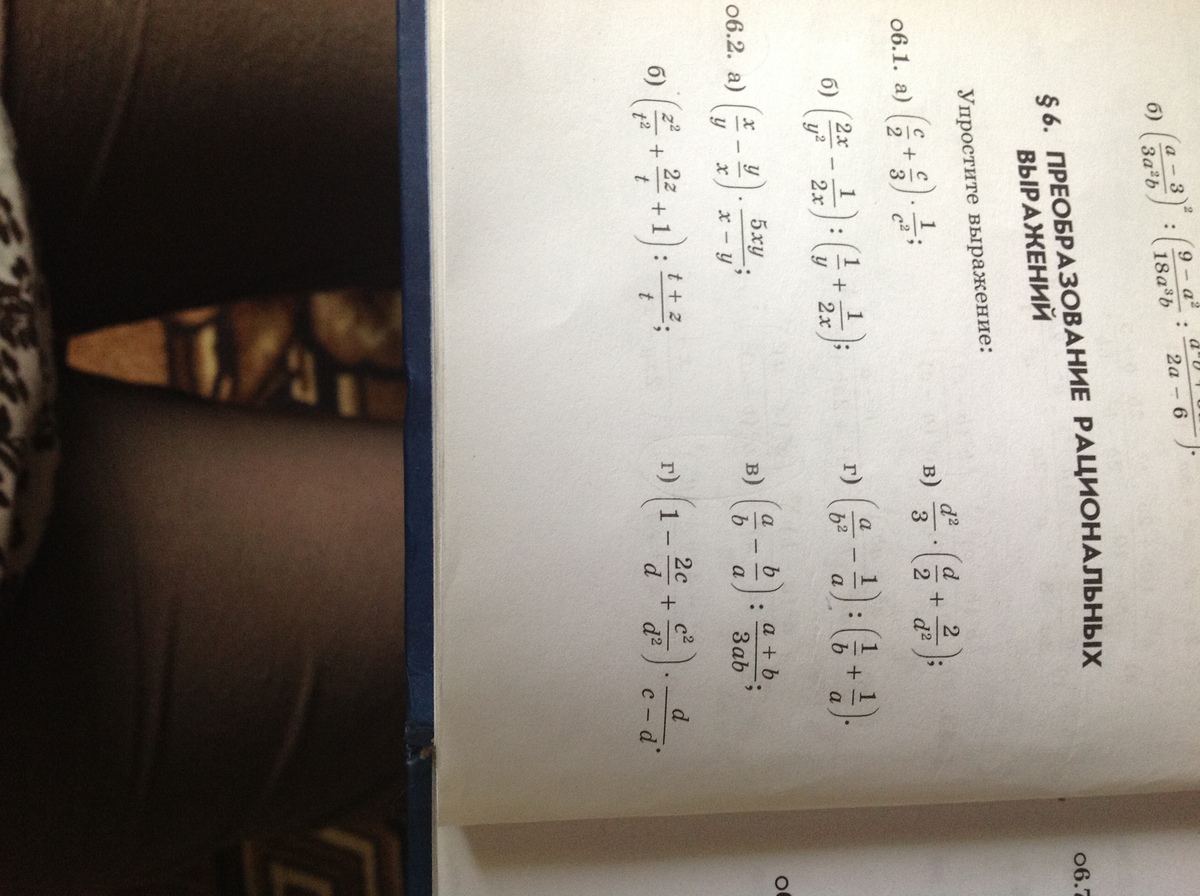 б) ((a − 3)/(3a²b))² : ((9 − a²)/(18a³b) : /(2a − 6)).
§ 6. ПРЕОБРАЗОВАНИЕ РАЦИОНАЛЬНЫХ
ВЫРАЖЕНИЙ
Упростите выражение:
о6.1. а) (c/2 + c/3) · 1/c²;
в) d²/3 · (d/2 + 2/d²);
б) (2x/y² − 1/2x) : (1/y + 1/2x);
г) (a/b² − 1/a) : (1/b + 1/a).
о6.2. а) (x/y − y/x) · 5xy/(x − y);
в) (a/b − b/a) : (a + b)/3ab;
б) (z²/t² + 2z/t + 1) : (t + z)/t;
г) (1 − 2c/d + c²/d²) · d/(c − d).